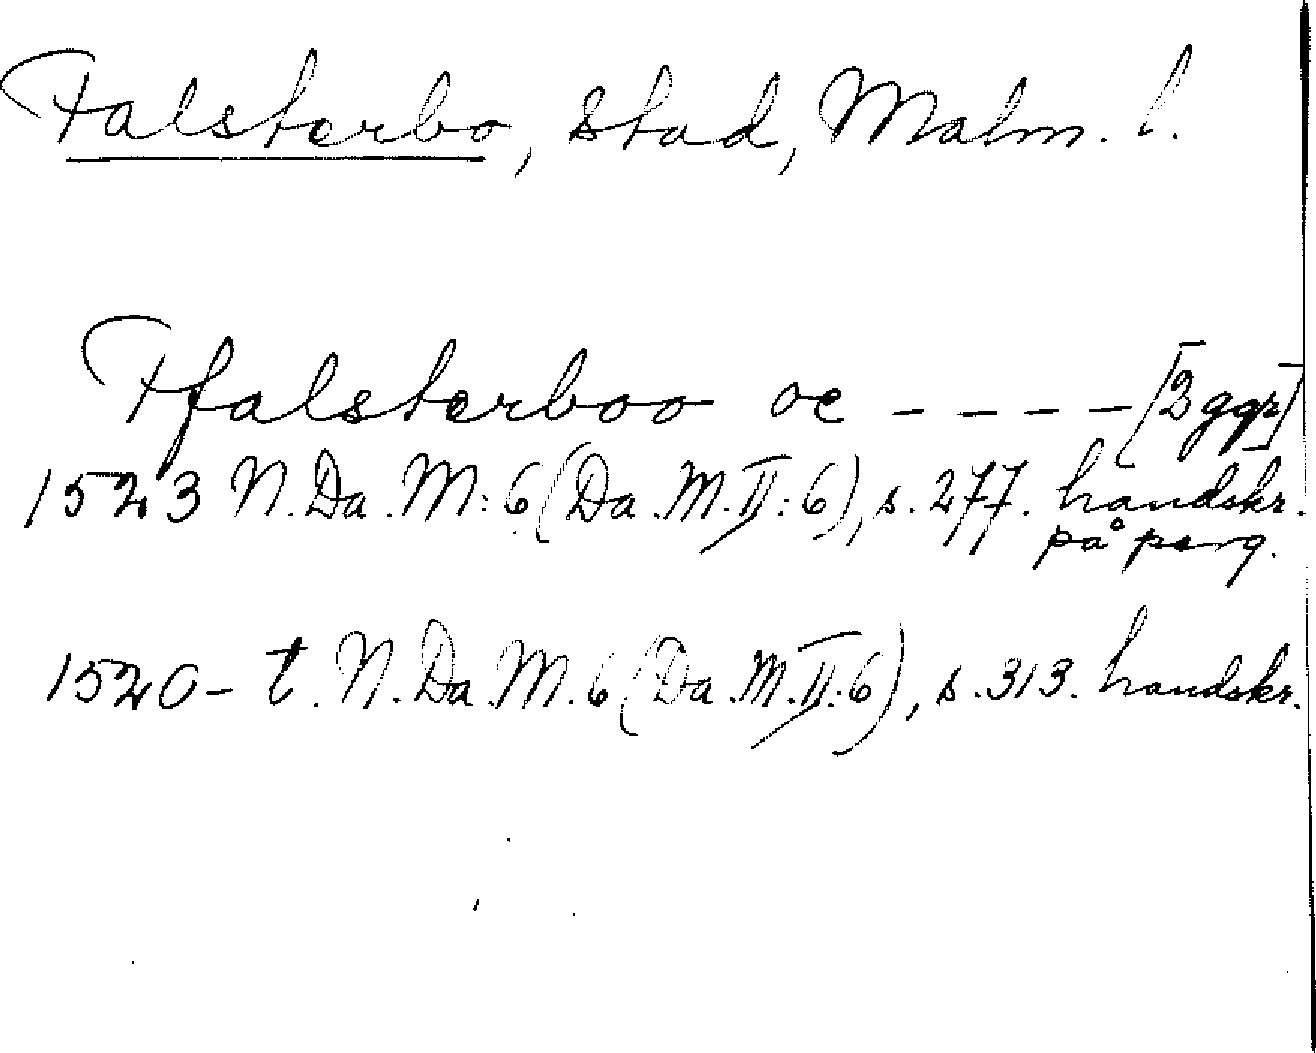 Falsterbo, stad, Malm. l.
Ffalsterboo oc - - - - [2 ggr]
1523 N. Da. M: 6 (Da. M. II: 6), s. 277. handskr.
på perg.
1520-t. N. Da. M. 6 (Da. M. II: 6), s. 313. handskr.